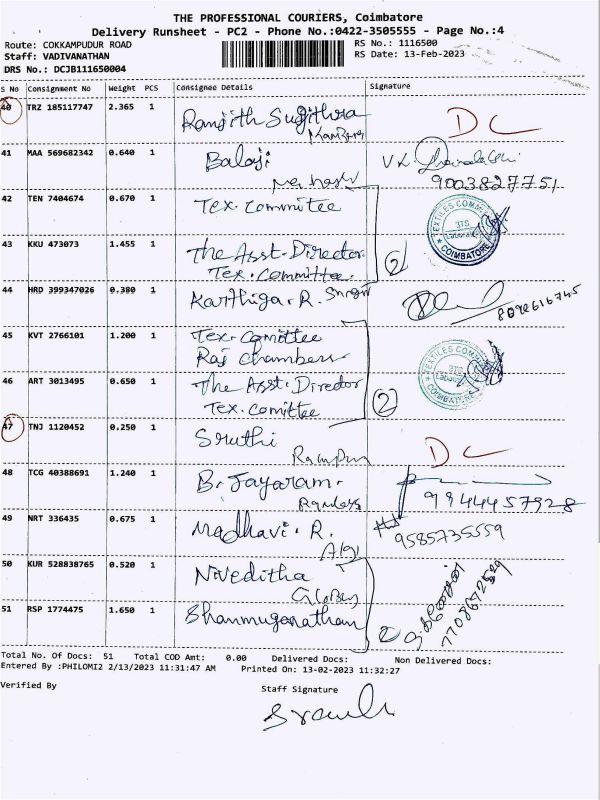 THE PROFESSIONAL COURIERS, Coimbatore
Delivery Runsheet - PC2 - Phone No.:0422-3505555 - Page No.:4
Route: COKKAMPUDUR ROAD RS No.: 1116500
Staff: VADIVANATHAN RS Date: 13-Feb-2023
DRS No.: DCJB111650004
S No Consignment No Weight PCS Consignee Details Signature
40 TRZ 185117747 2.365 1 Ranjith Sugithra DC
41 MAA 569682342 0.640 1 Balaji
9003827751
42 TEN 7404674 0.670 1 Tex. Committee
TEXTILES COMM
COIMBATORE
43 KKU 473073 1.455 1 The Asst. Director
Tex. Committee. 2
44 HRD 399347026 0.380 1 Karthiga. R.
8098616745
45 KVT 2766101 1.200 1 Tex. Comittee
Raj Chambers
TEXTILES COMM
COIMBATORE
46 ART 3013495 0.650 1 The Asst. Director
Tex. Comittee 2
47 TNJ 1120452 0.250 1 Sruthi DC
48 TCG 40388691 1.240 1 B. Jayaram.
9944457928
49 NRT 336435 0.675 1 Madhavi. R.
9585735559
50 KUR 528838765 0.520 1 Niveditha
51 RSP 1774475 1.650 1 Shanmuganathan 2
Total No. Of Docs: 51 Total COD Amt: 0.00 Delivered Docs: Non Delivered Docs:
Entered By :PHILOMI2 2/13/2023 11:31:47 AM Printed On: 13-02-2023 11:32:27
Verified By Staff Signature